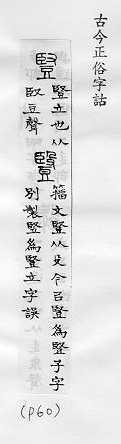 古今正俗字詁
豎
豎立也从
臤豆聲
籀文豎从殳今㠯豎為豎子字
別製竪為豎立字誤
(P60)